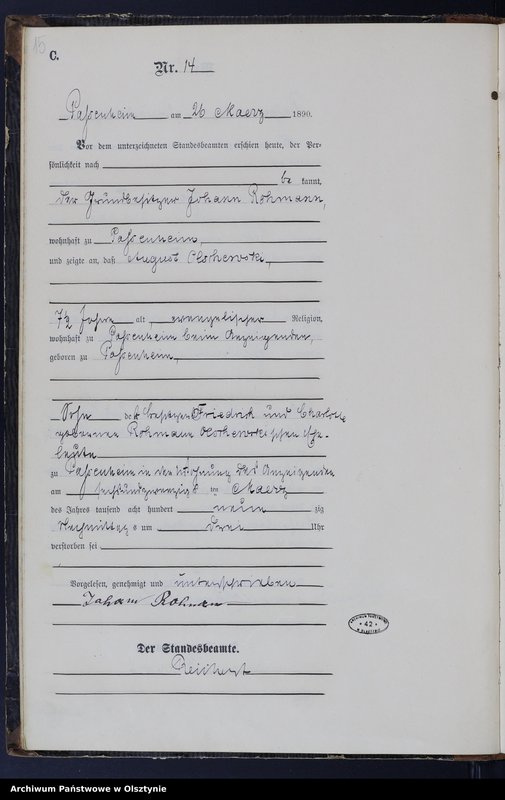 15
C.
Nr. 14
Passenheim am 26 Maerz 1890.
Vor dem unterzeichneten Standesbeamten erschien heute, der Per-
sönlichkeit nach
be kannt,
der Grundbesitzer Johann Rohmann,
wohnhaft zu Passenheim,
und zeigte an, daß August Olschewski,
7½ Jahre alt, evangelischer Religion,
wohnhaft zu Passenheim beim Anzeigenden,
geboren zu Passenheim,
Sohn der Besitzer Friedrich und Charlotte
geborenen Rohmann Olschewski'schen Ehe-
leute
zu Passenheim in der Wohnung des Anzeigenden
am sechsundzwanzigs ten Maerz
des Jahres tausend acht hundert neun zig
Nachmittags um drei Uhr
verstorben sei.
Vorgelesen, genehmigt und unterschrieben
Johann Rohmann
Der Standesbeamte.
Reichert
ARCHIWUM PAŃSTWOWE
* 42 *
W OLSZTYNIE
Archiwum Państwowe w Olsztynie